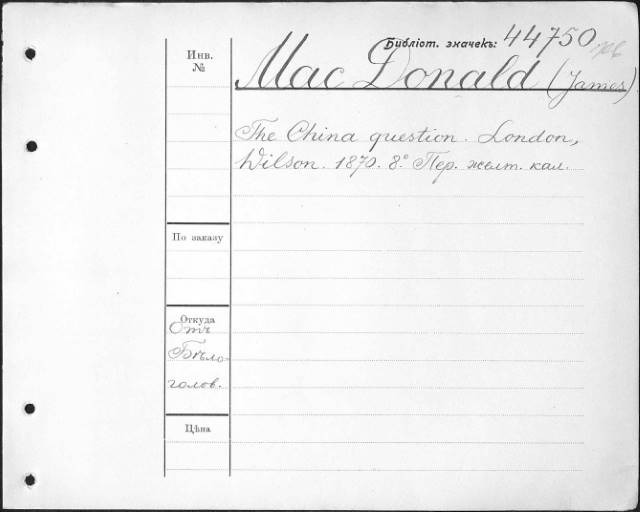 Библіот. значекъ: 44750
Инв.
№
Mac Donald (James).
The China question. London,
Wilson. 1870. 8° Пер. желт. кал.
По заказу
Откуда
Отъ
Бѣло-
голов.
Цѣна